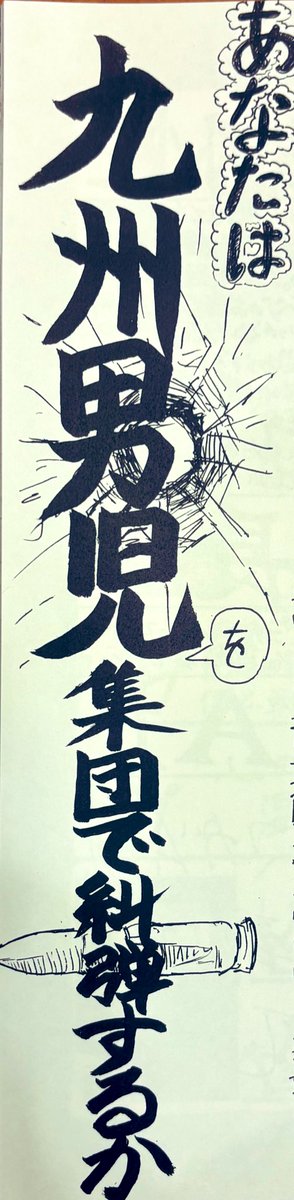 あなたは
九州男児を
集団で糾弾するか